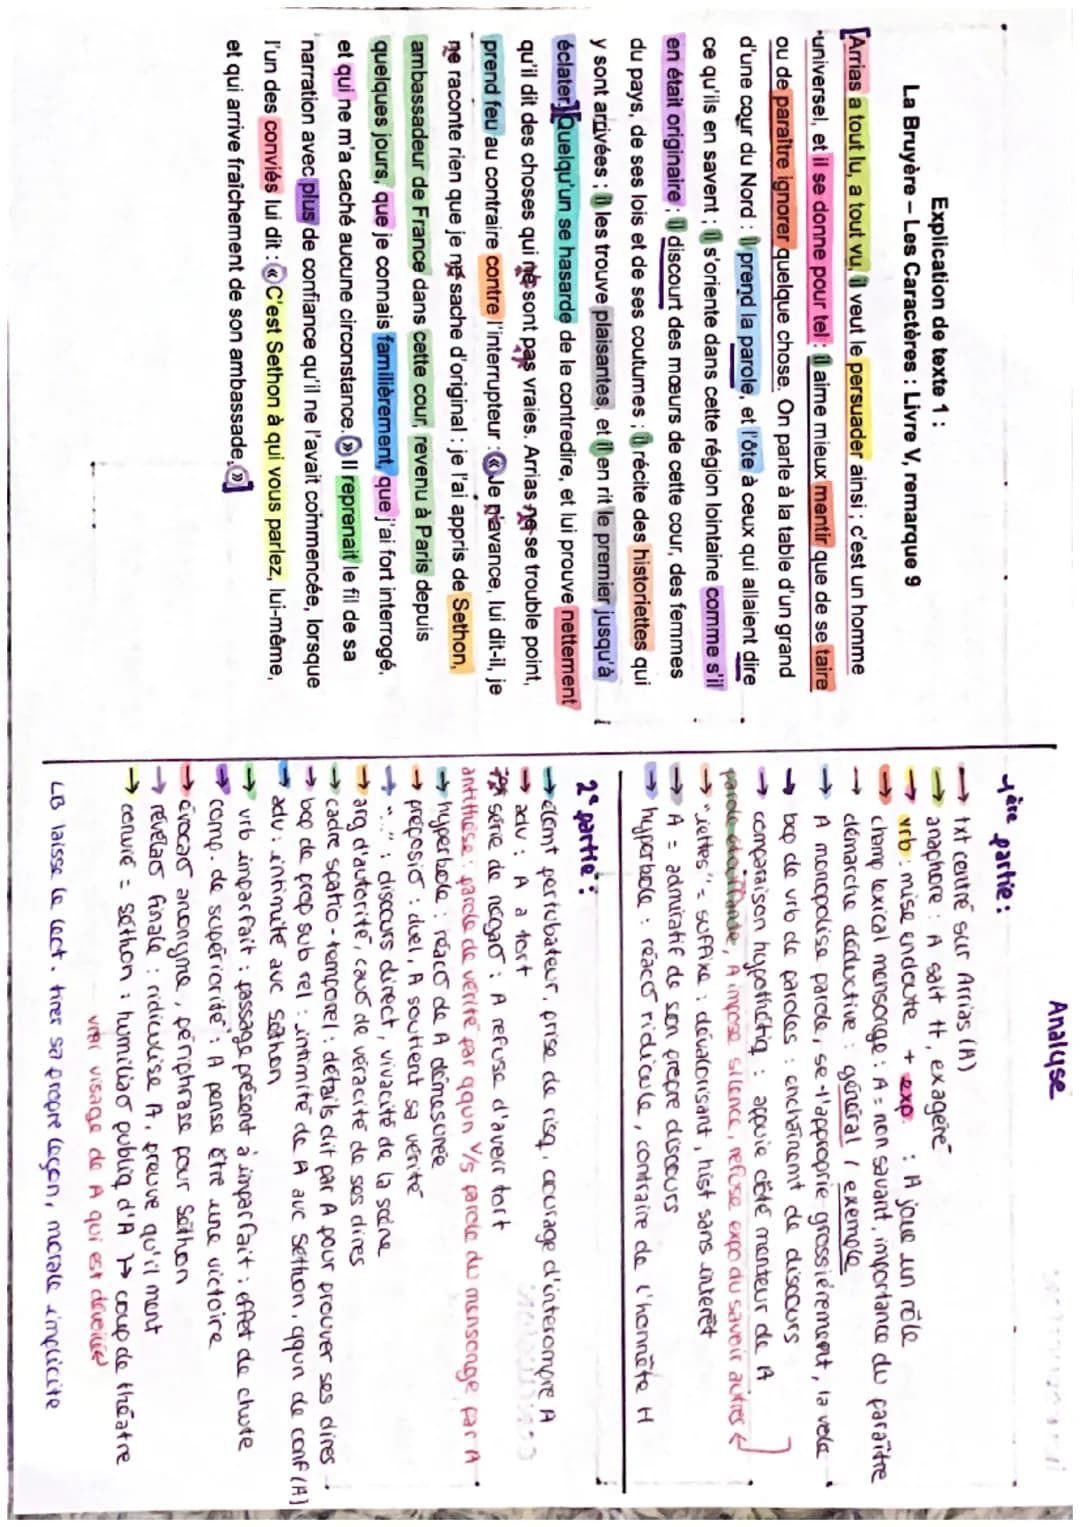 Explication de texte 1 :
La Bruyère – Les Caractères : Livre V, remarque 9
[Arrias a tout lu, a tout vu, il veut le persuader ainsi ; c'est un homme
universel, et il se donne pour tel : il aime mieux mentir que de se taire
ou de paraître ignorer quelque chose. On parle à la table d'un grand
d'une cour du Nord : il prend la parole, et l'ôte à ceux qui allaient dire
ce qu'ils en savent ; il s'oriente dans cette région lointaine comme s'il
en était originaire ; il discourt des mœurs de cette cour, des femmes
du pays, de ses lois et de ses coutumes ; il récite des historiettes qui
y sont arrivées ; il les trouve plaisantes, et il en rit le premier jusqu'à
éclater.][Quelqu'un se hasarde de le contredire, et lui prouve nettement
qu'il dit des choses qui ne sont pas vraies. Arrias ne se trouble point,
prend feu au contraire contre l'interrupteur : « Je n'avance, lui dit-il, je
ne raconte rien que je ne sache d'original : je l'ai appris de Sethon,
ambassadeur de France dans cette cour, revenu à Paris depuis
quelques jours, que je connais familièrement, que j'ai fort interrogé,
et qui ne m'a caché aucune circonstance. » Il reprenait le fil de sa
narration avec plus de confiance qu'il ne l'avait commencée, lorsque
l'un des conviés lui dit : « C'est Sethon à qui vous parlez, lui-même,
et qui arrive fraîchement de son ambassade. »]
Analyse
1ère partie :
→ txt centré sur Arrias (A)
→ anaphore : A sait tt, exagère
→ vrb : mise en doute + exp. : A joue un rôle
→ champ lexical mensonge : A = non savant, importance du paraître
→ démarche déductive : général / exemple
→ A monopolise parole, se l'approprie grossièrement, la vole
→ bcp de vrb de paroles : enchaînent de discours
→ comparaison hypothétiq : appuie côté menteur de A
parole étouffante, A impose silence, refuse expo du savoir autres ←
→ "iettes" = suffixe : dévalorisant, hist sans intérêt
→ A = admiratif de son propre discours
→ hyperbole : réacº ridicule, contraire de l'honnête H
2e partie :
→ élémt pertubateur, prise de risq, courage d'interompre A
→ adv : A a tort
→ série de négaº : A refuse d'avoir tort
antithèse : parole de vérité par qqun V/s parole du mensonge par A
→ hyperbole : réacº de A démesurée
→ préposiº : duel, A soutient sa vérité
→ "..." : discours direct, vivacité de la scène
→ arg d'autorité, cauº de véracité de ses dires
→ cadre spatio-temporel : détails dit par A pour prouver ses dires
→ bcp de prop sub rel : intimité de A avc Séthon, qqun de conf (A)
→ adv : intimité avc Séthon
→ vrb imparfait : passage présent à imparfait : effet de chute
→ comp. de supériorité : A pense être une victoire
→ évocaº anonyme, périphrase pour Séthon
→ révélaº finale : ridiculise A, preuve qu'il ment
→ convié = séthon : humiliaº publiq d'A ↦ coup de théâtre
vrai visage de A qui est dévoilé
LB laisse le lect. tirer sa propre leçon, morale implicite